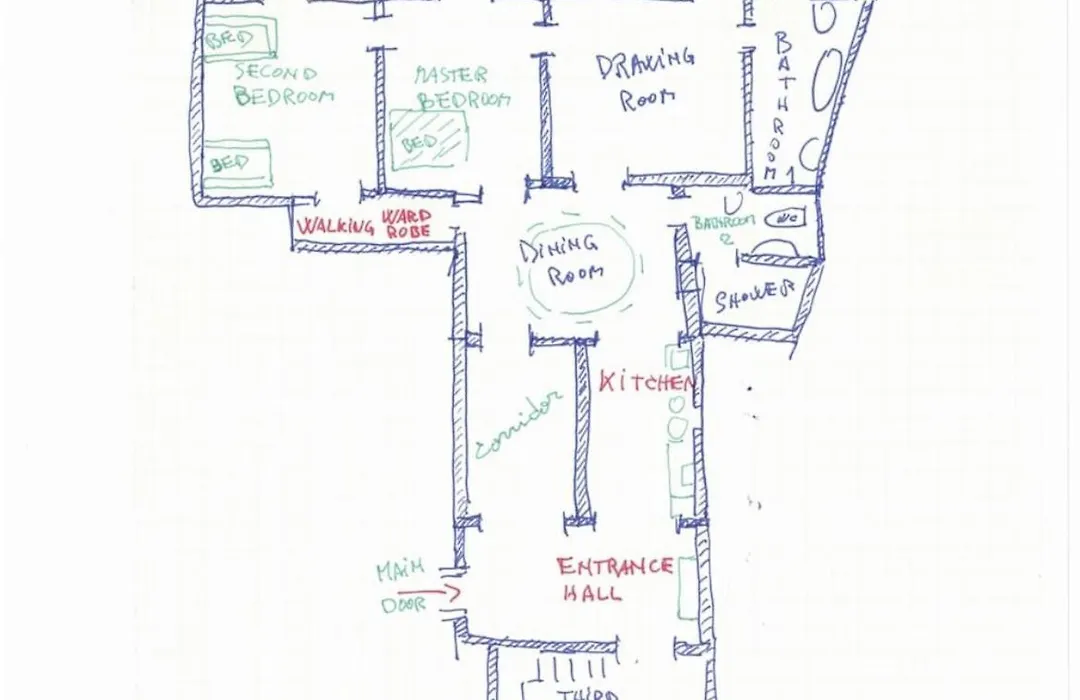 BED
SECOND
BEDROOM
BED
MASTER
BEDROOM
BED
DRAWING
ROOM
BATHROOM 1
WALKING WARD
ROBE
DINING
ROOM
BATHROOM
2
WC
SHOWER
KITCHEN
corridor
ENTRANCE
HALL
MAIN
DOOR
THIRD